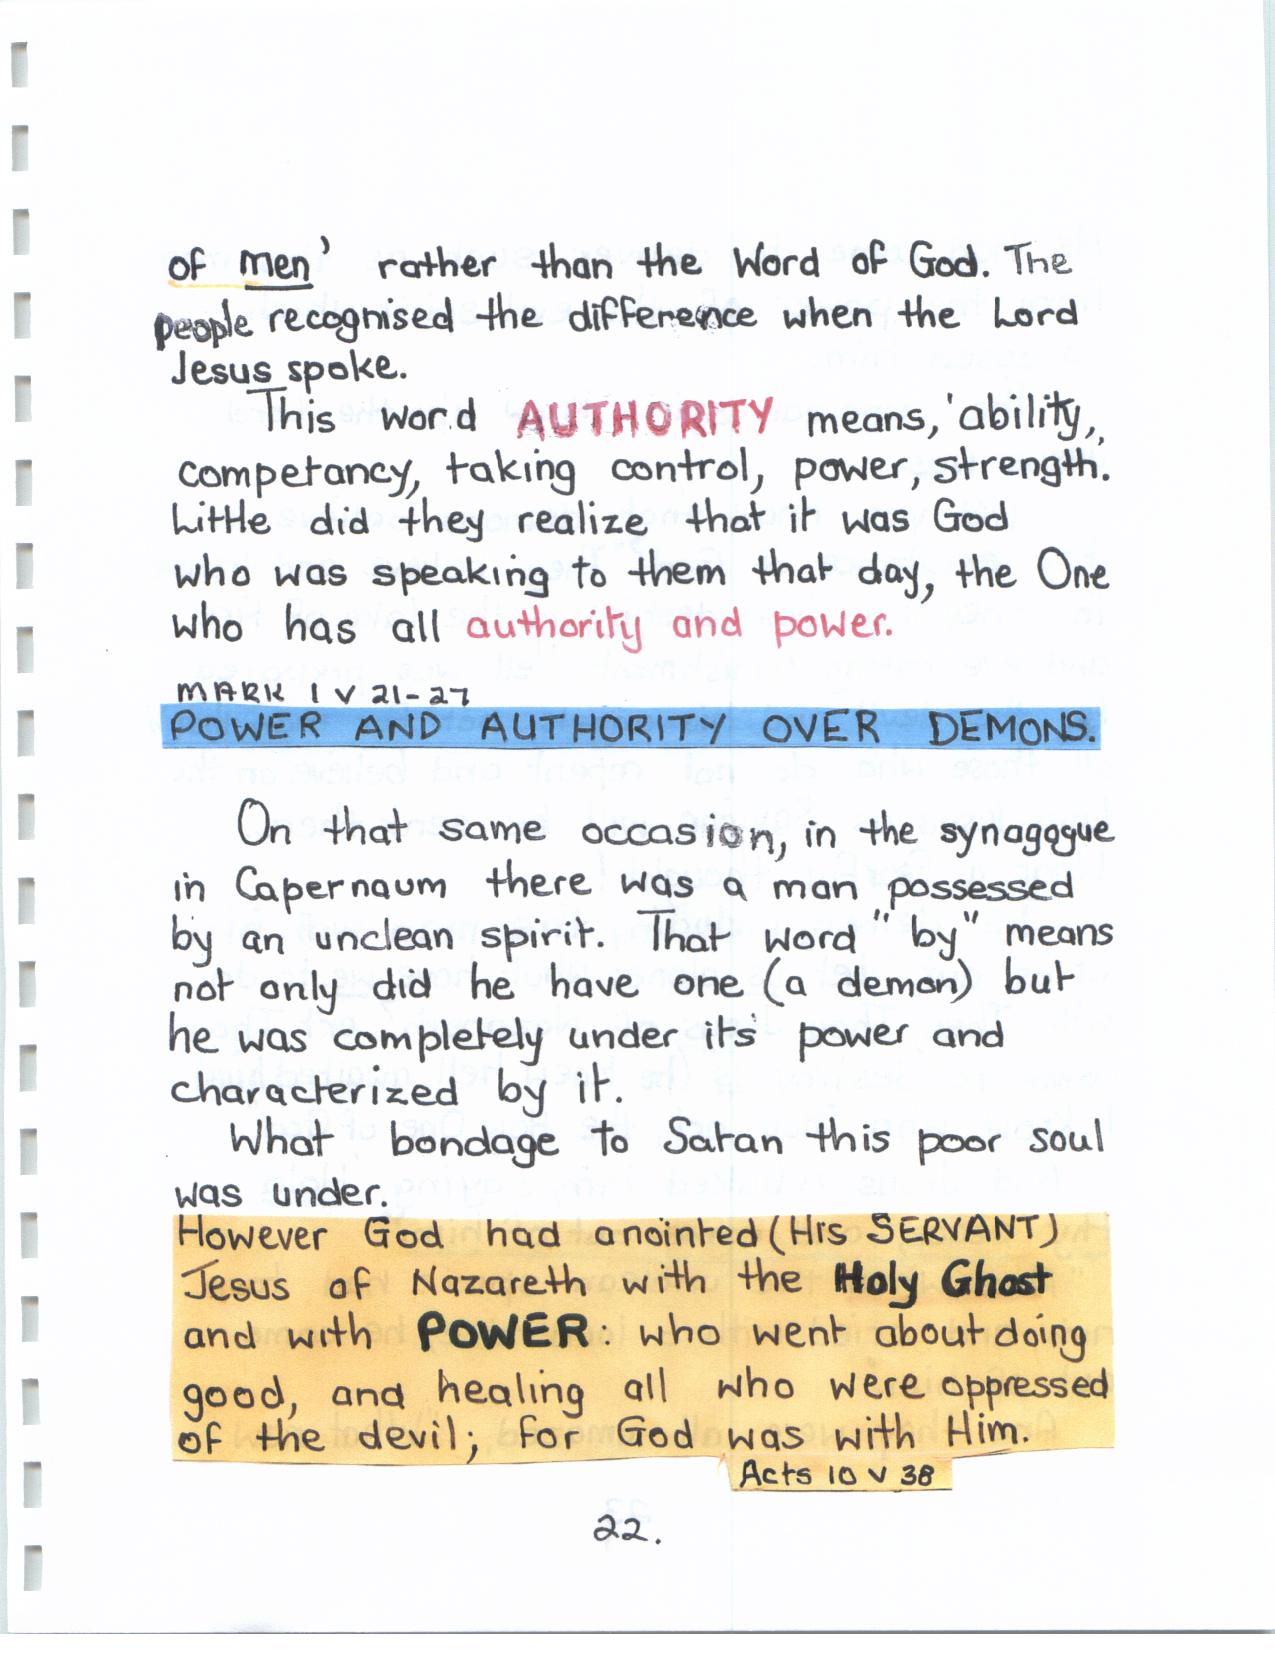 of men' rather than the Word of God. The
people recognised the difference when the Lord
Jesus spoke.
This word AUTHORITY means, 'ability,,
competancy, taking control, power, strength.
Little did they realize that it was God
who was speaking to them that day, the One
who has all authority and power.
MARK 1 v 21-27
POWER AND AUTHORITY OVER DEMONS.
On that same occasion, in the synagogue
in Capernaum there was a man possessed
by an unclean spirit. That word "by" means
not only did he have one (a demon) but
he was completely under it's power and
characterized by it.
What bondage to Satan this poor soul
was under.
However God had anointed (His SERVANT)
Jesus of Nazareth with the Holy Ghost
and with POWER: who went about doing
good, and healing all who were oppressed
of the devil; for God was with Him.
Acts 10 v 38
22.